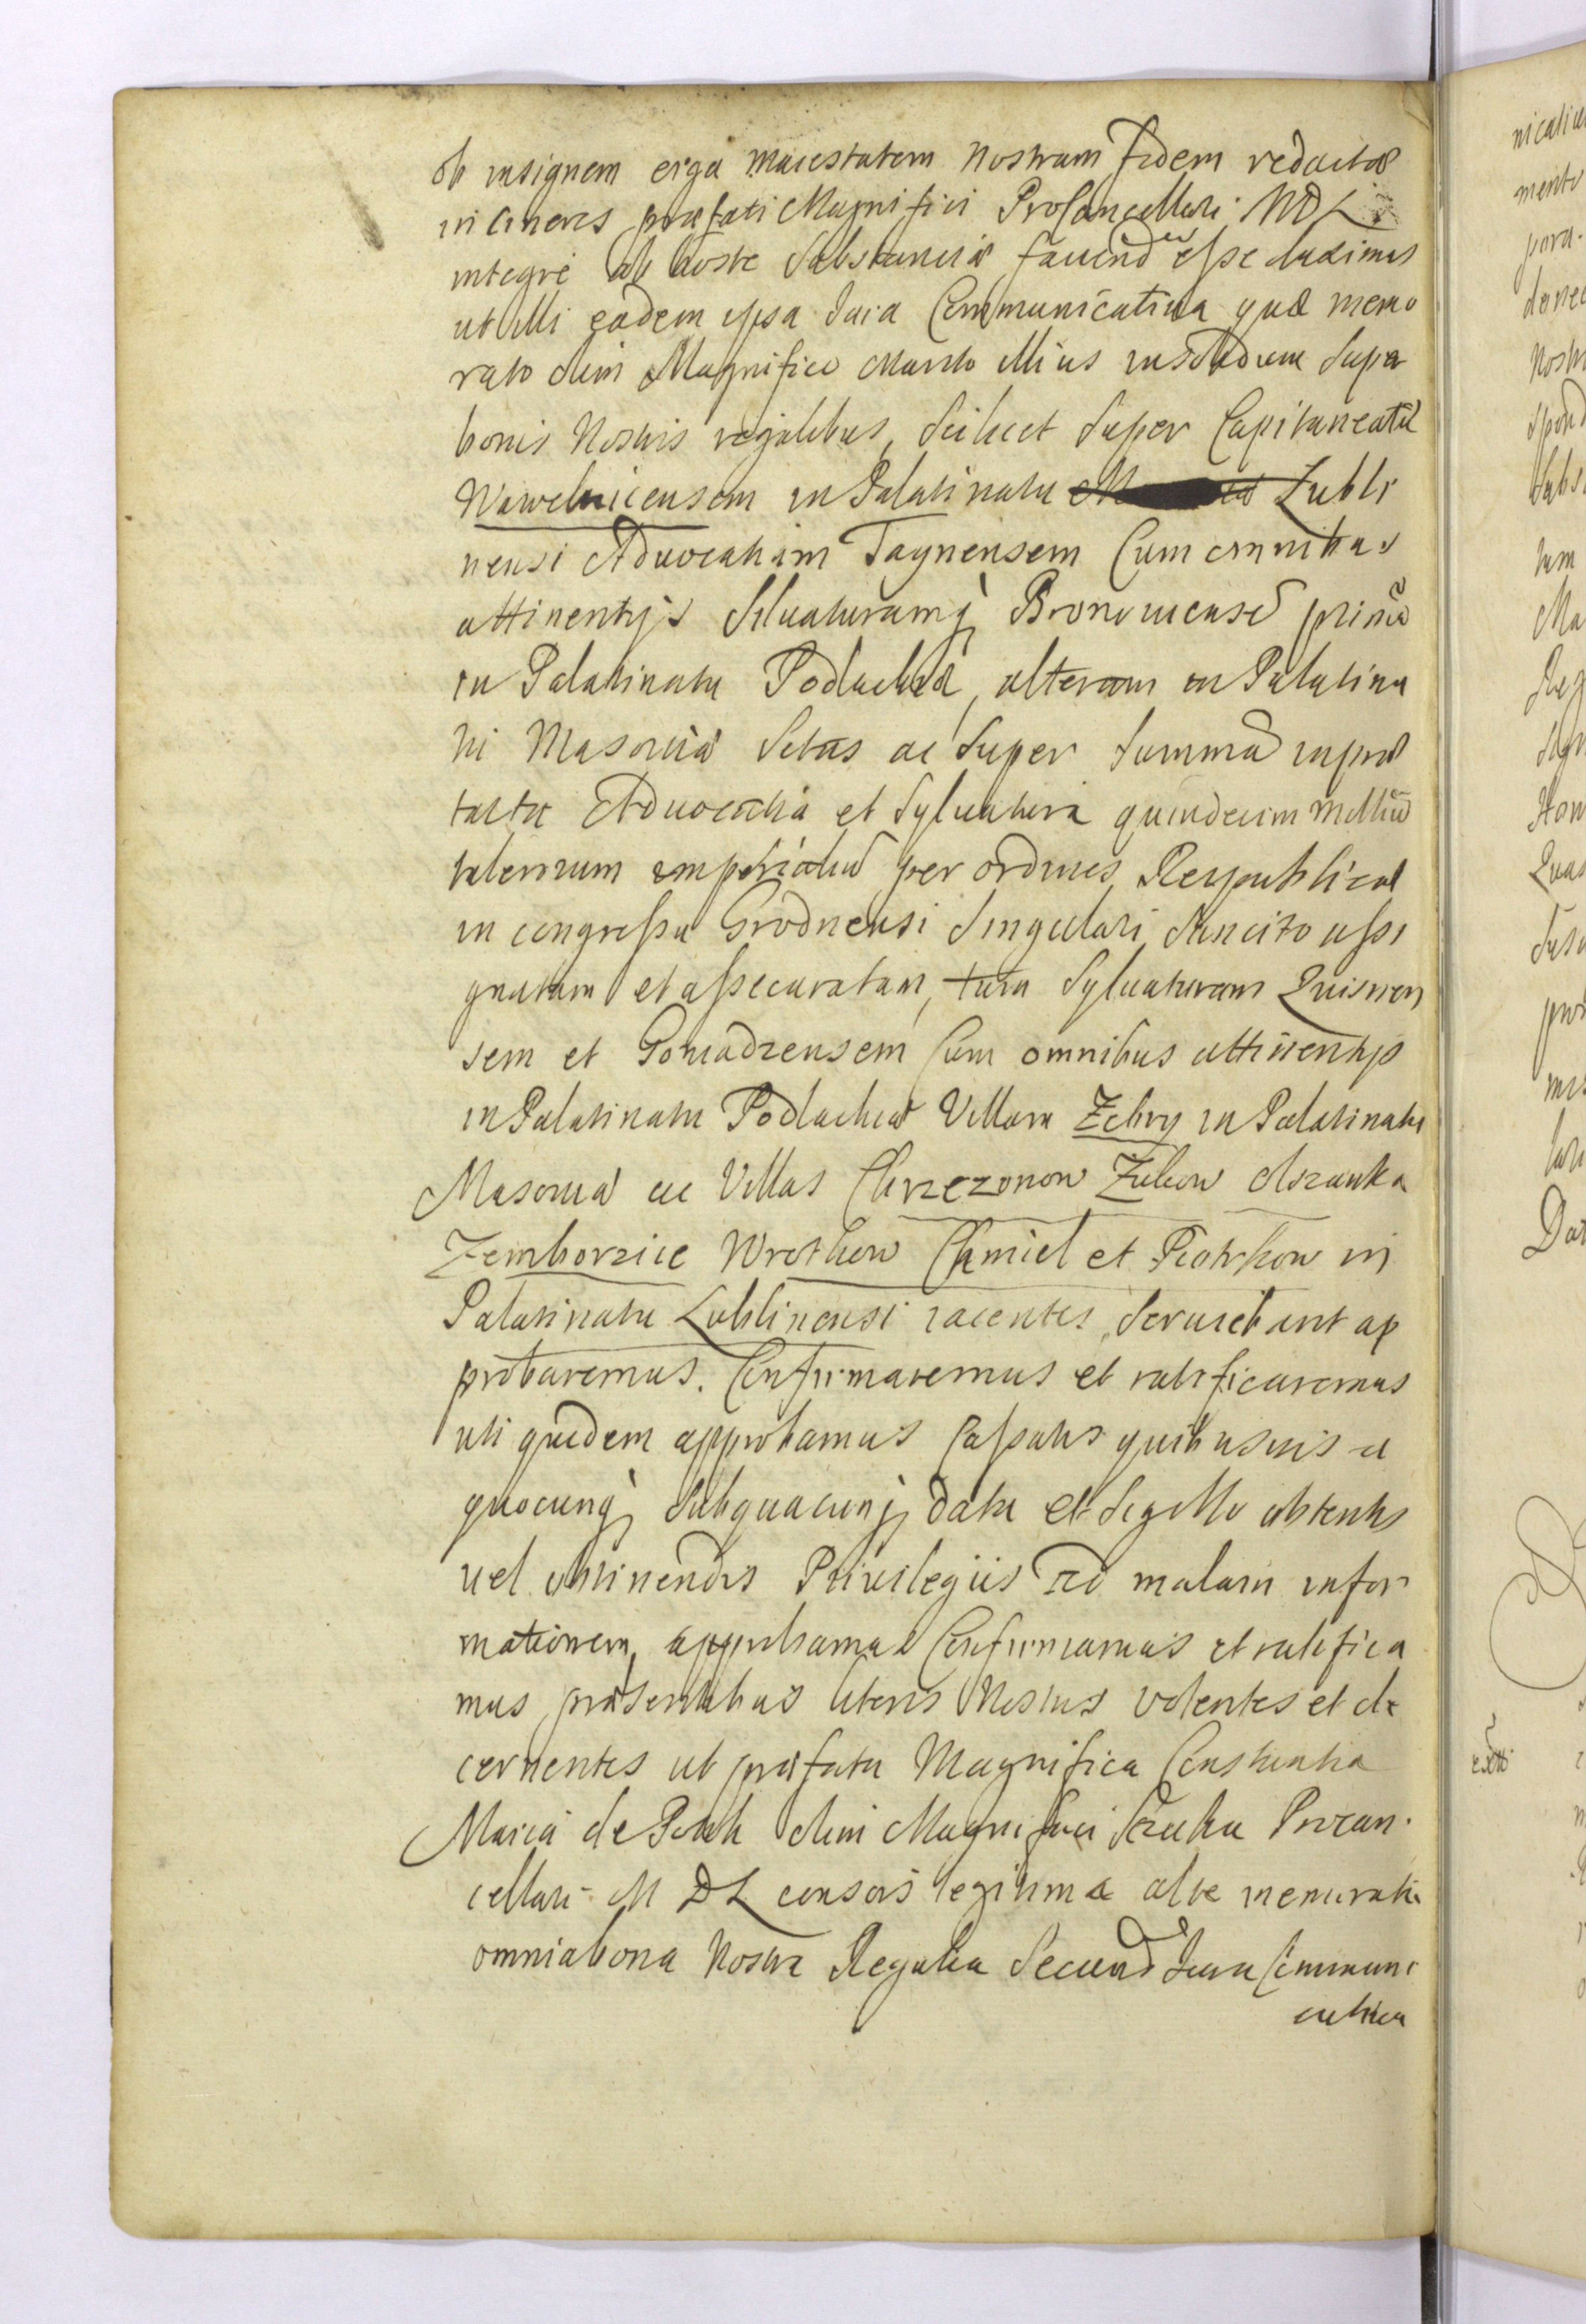 ob insignem erga maiestatem nostram fidem redactæ
in cineres præfati Magnifici ProCancellari MDL.
integré ab hoste Substantiæ fauend esse duximus
ut illi eadem ipsa Iura Communicatiua quæ memo
rato olim Magnifico Marito illius inseruiunt Super
bonis Nostris regalibus, Scilicet Super Capitaneatũ
Wawelnicensem in Palatinatu Lubli
nensi Aduocatiam Taynensem Cum omnibus
attinentijs Siluaturamq̃ Bronoviensẽ primã
in Palatinatu Podlachiæ, alteram in Palatina
tu Masoviæ Sitas ac Super Summã in præ
tacta Aduocatia et Syluatura quindecim Milliũ
talerorum imperialiũ per ordines Reipublicæ
in congressu Grodnensi Singulari Sancito assi
gnatam et assecuratam, tum Syluaturam Knisnen
sem et Goniadzensem Cum omnibus attinentijs
in Palatinatu Podlachiæ Villam Zebry in Palatinatu
Masoviæ ac Villas Chrzczonow Zukow Olszanka
Zemborzice Wrotkow Chmiel et Piotrkow in
Palatinatu Lublinensi iacentes Seruiebant ap
probaremus. Confirmaremus et ratificaremus
uti quidem approbamus Cassatis quibusuis a
quocunq̃ Subquacunq̃ data et Sigillo obtentis
vel obtinendis Privilegiis ad malam infor
mationem, approbamus Confirmamus et ratifica
mus præsentibus literis Nostris volentes et de
cernentes ut præfata Magnifica Constantia
Maria de olim Magnifici Procan
cellari M D L consors legitima alte memorata
omnia bona Nostra Regalia Secund Iura Communi
catiua